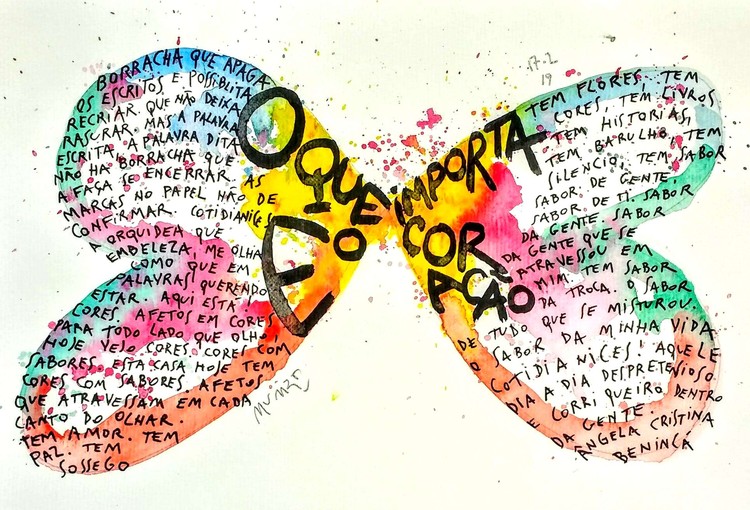 BORRACHA QUE APAGA
OS ESCRITOS E POSSIBLITA
RECRIAR. QUE NÃO DEIXA
RASURAR. MAS A PALAVRA
ESCRITA, A PALAVRA DITA
NÃO HÁ BORRACHA QUE
A FAÇA SE ENCERRAR. AS
MARCAS NO PAPEL HÃO DE
CONFIRMAR. COTIDIANICES
A ORQUIDEA QUE
EMBELEZA, ME OLHA
COMO QUE EM
PALAVRAS QUERENDO
ESTAR AQUI ESTÁ
CORES AFETOS EM CORES
PARA TODO LADO QUE OLHO
HOJE VEJO CORES. CORES COM
SABORES. ESTA CASA HOJE TEM
CORES COM SABORES. AFETOS
QUE ATRAVESSAM EM CADA
CANTO DO OLHAR.
TEM AMOR. TEM
PAZ. TEM
SOSSEGO
O QUE
IMPORTA
É O
COR
AÇÃO
17.2
19
TEM FLORES, TEM
CORES. TEM LIVROS
TEM HISTORIAS,
TEM BARULHO, TEM
SILENCIO, TEM SABOR
SABOR DE GENTE.
SABOR DE TI. SABOR
DA GENTE. SABOR
DA GENTE QUE SE
ATRAVESSOU EM
MIM. TEM SABOR
DA TROCA. SABOR
DE TUDO QUE SE MISTUROU.
O SABOR DA MINHA VIDA
COTIDIANICES! AQUELE
DIA A DIA DESPRETENSIOSO
E CORRIQUEIRO DENTRO
DA GENTE.
ÂNGELA CRISTINA
BENINCÁ